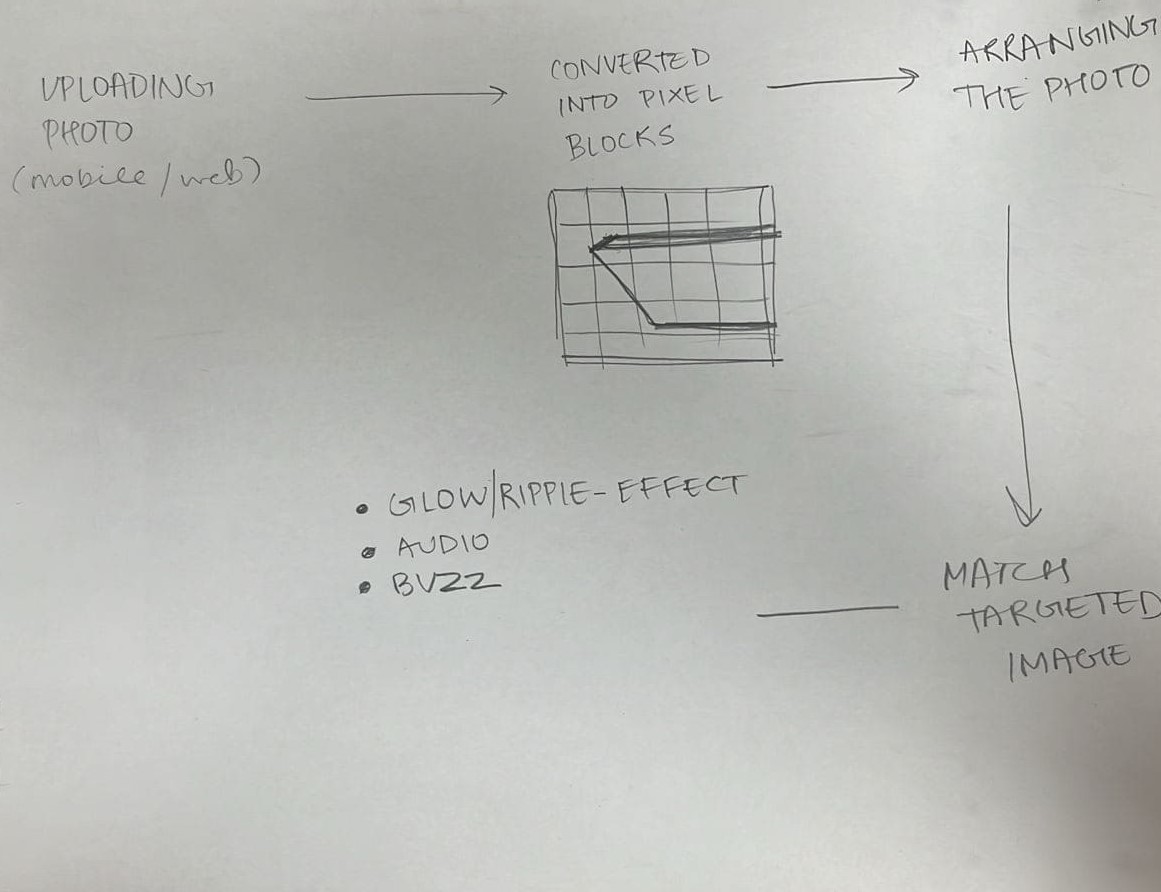 UPLOADING
PHOTO
(mobile/web)
CONVERTED
INTO PIXEL
BLOCKS
ARRANGING
THE PHOTO
• GLOW/RIPPLE-EFFECT
• AUDIO
• BUZZ
MATCH
TARGETED
IMAGE